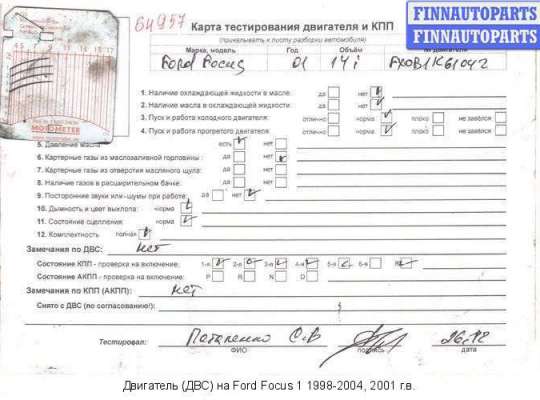 64957
FINNAUTOPARTS
FINNAUTOPARTS
Карта тестирования двигателя и КПП
(прикалывать к листу разборки автомобиля)
Марка, модель Год Объём № двигателя
Ford Focus 01 1 4i FXDB1K61042
MOTOMETER
1. Наличие охлаждающей жидкости в масле: да нет
2. Наличие масла в охлаждающей жидкости: да нет
3. Пуск и работа холодного двигателя: отлично норма плохо не завёлся
4. Пуск и работа прогретого двигателя: отлично норма плохо не завёлся
5. Давление масла есть нет
6. Картерные газы из маслозаливной горловины: да нет
7. Картерные газы из отверстия масляного щупа: да нет
8. Наличие газов в расширительном бачке: да нет
9. Посторонние звуки или шумы при работе: да нет
10. Дымность и цвет выхлопа: норма
11. Состояние сцепления: норма
12. Комплектность полная
Замечания по ДВС: нет
Состояние КПП - проверка на включение: 1-я 2-я 3-я 4-я 5-я 6-я R
Состояние АКПП - проверка на включение: P R N D
Замечания по КПП (АКПП): нет
Снято с ДВС (по согласованию!):
Тестировал: Потапенко С.В 26.12
ФИО подпись дата
Двигатель (ДВС) на Ford Focus 1 1998-2004, 2001 г.в.